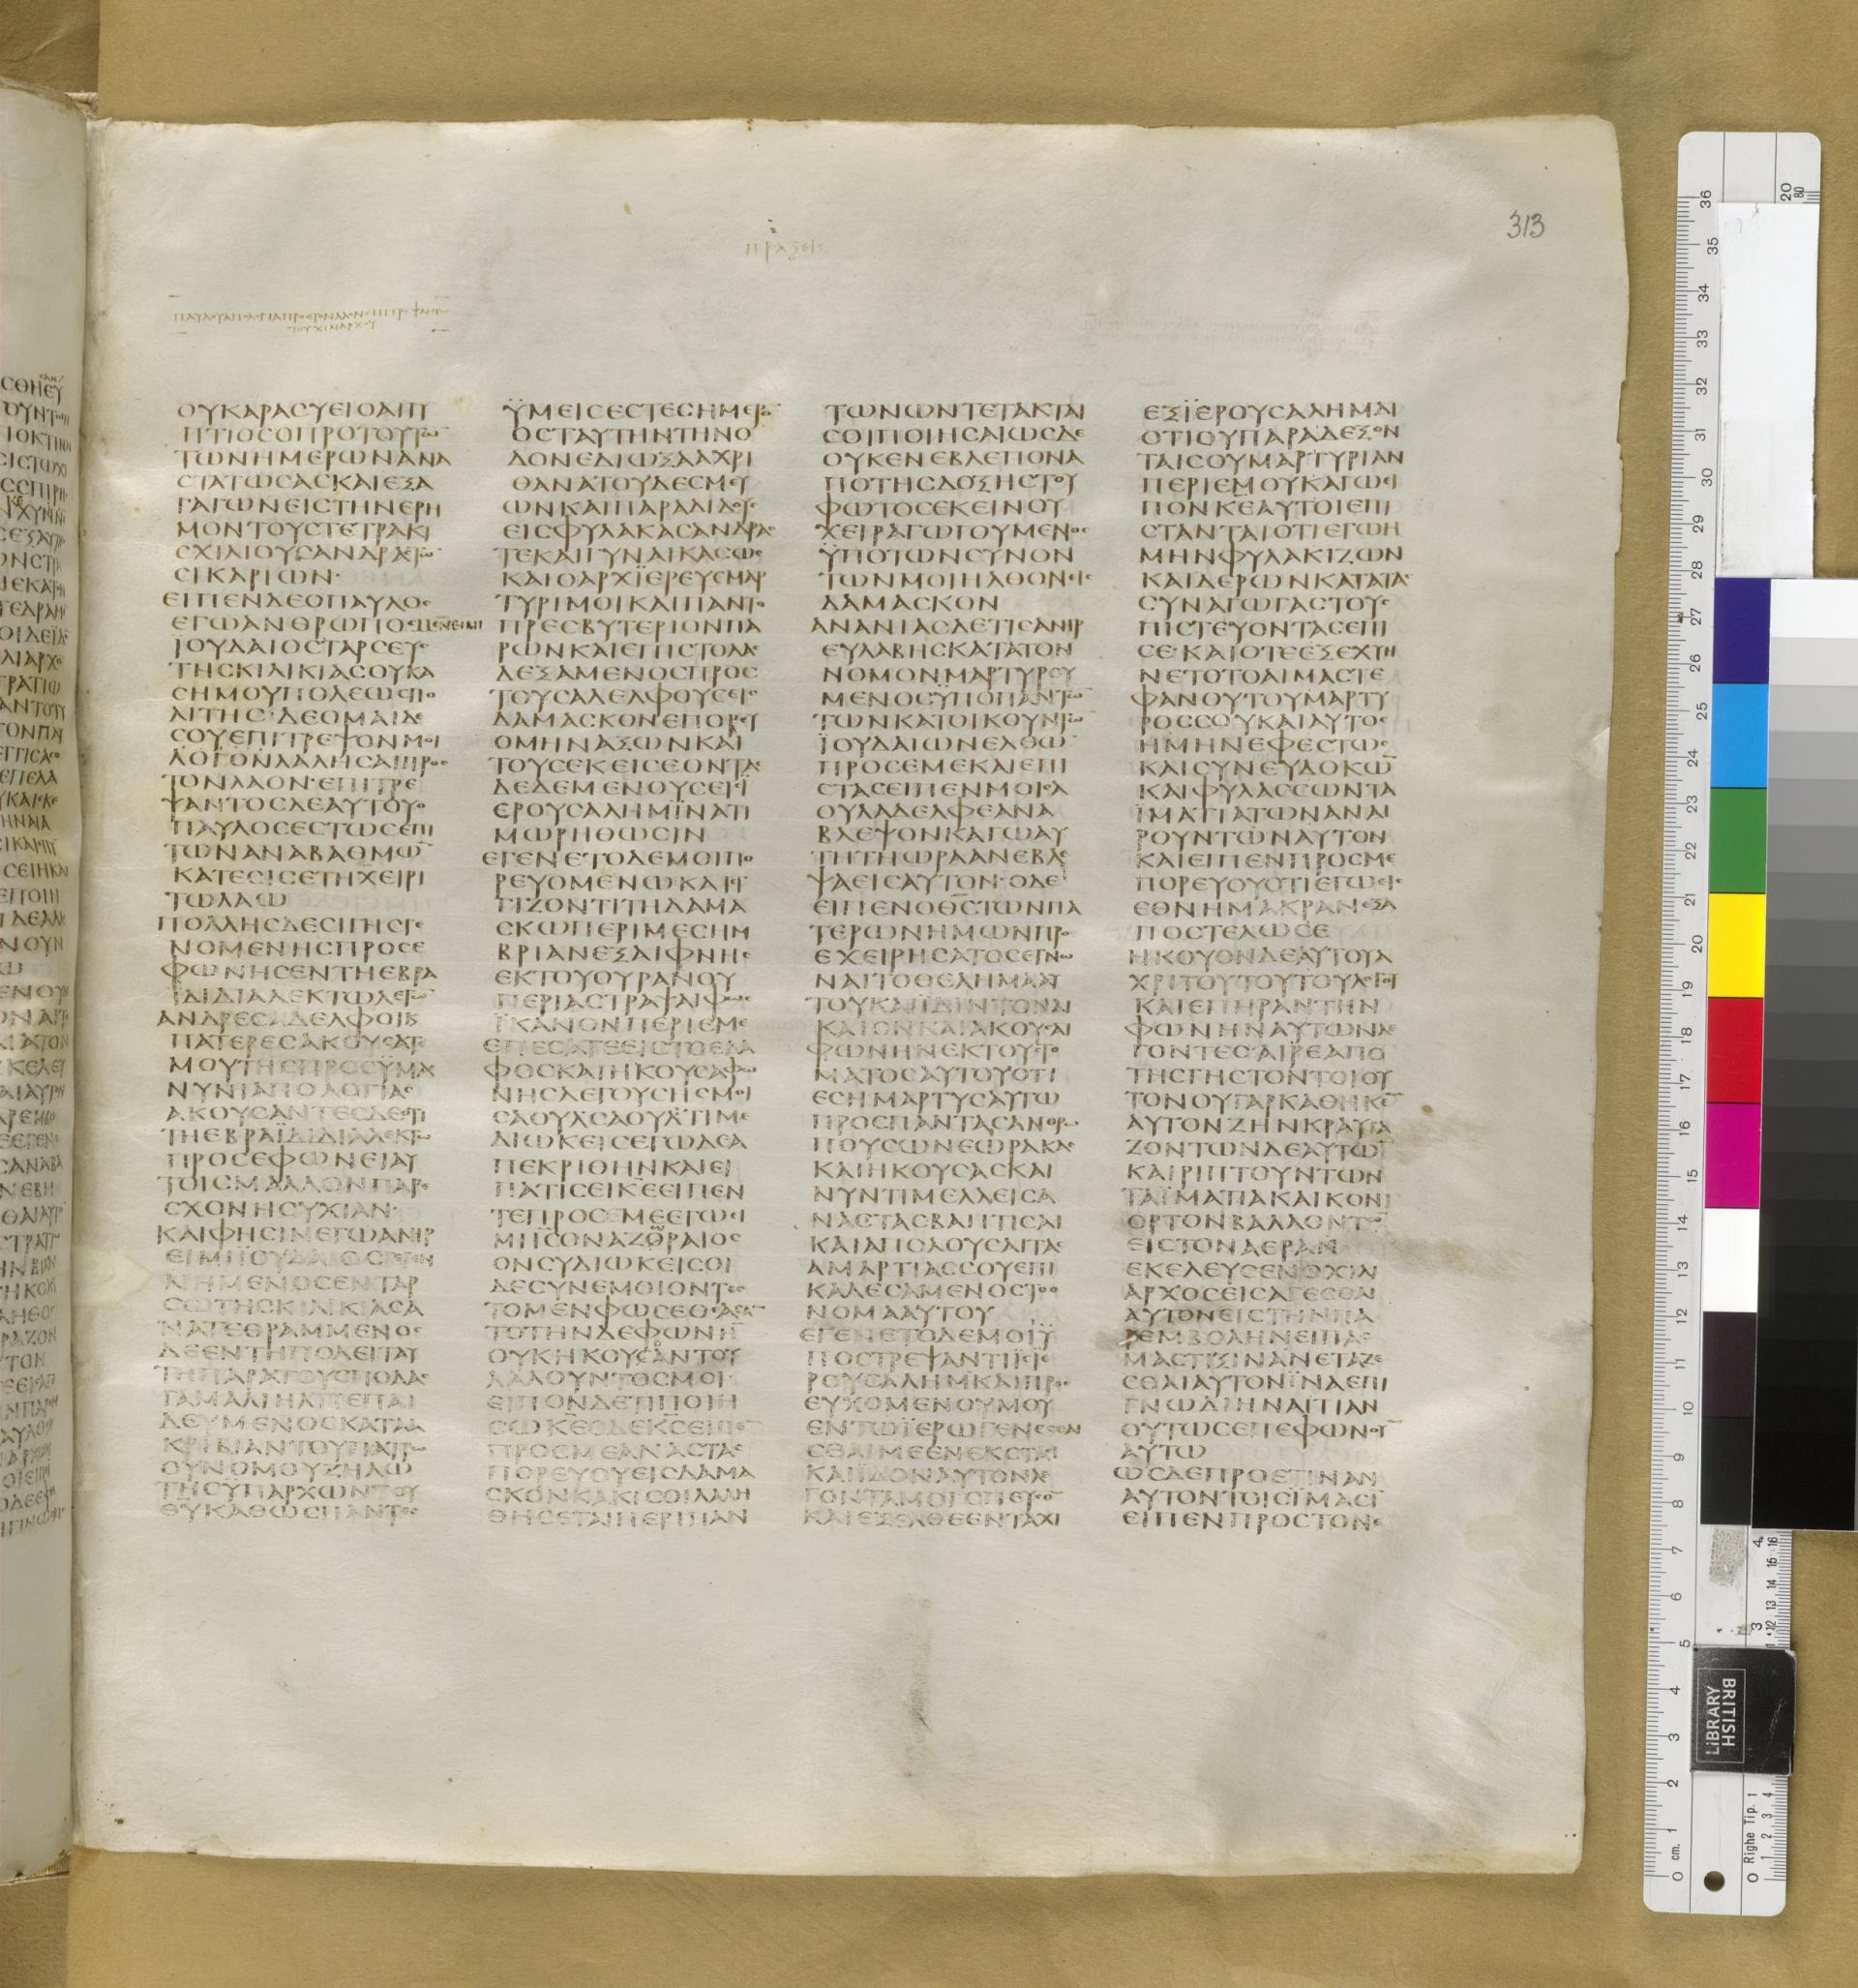 313
ΠΡΑΞΕΙϹ
ΟΥΚΑΡΑϹΥΕΙΟΑΙΓΥ
ΠΤΙΟϹΟΠΡΟΤΟΥΤΩ̅
ΤΩΝΗΜΕΡΩΝΑΝΑ
ϹΤΑΤΩϹΑϹΚΑΙΕΞΑ
ΓΑΓΩΝΕΙϹΤΗΝΕΡΗ
ΜΟΝΤΟΥϹΤΕΤΡΑΚΙ
ϹΧΙΛΙΟΥϹΑΝΔΡΑϹΤΩ̅
ϹΙΚΑΡΙΩΝ·
ΕΙΠΕΝΔΕΟΠΑΥΛΟϹ
ΕΓΩΑΝΘΡΩΠΟϹΜΕΝΕΙΜΙ
ΪΟΥΔΑΙΟϹΤΑΡϹΕΥϹ
ΤΗϹΚΙΛΙΚΙΑϹΟΥΚΑ
ϹΗΜΟΥΠΟΛΕΩϹΠΟ
ΛΙΤΗϹ·ΔΕΟΜΑΙΔΕ
ϹΟΥΕΠΙΤΡΕΨΟΝΜΟΙ
ΛΟΓΟΝΛΑΛΗϹΑΙΠΡΟϹ
ΤΟΝΛΑΟΝ·ΕΠΙΤΡΕ
ΨΑΝΤΟϹΔΕΑΥΤΟΥΟ
ΠΑΥΛΟϹΕϹΤΩϹΕΠΙ
ΤΩΝΑΝΑΒΑΘΜΩ̅
ΚΑΤΕϹΙϹΕΤΗΧΕΙΡΙ
ΤΩΛΑΩ
ΠΟΛΛΗϹΔΕϹΙΓΗϹΓΕ
ΝΟΜΕΝΗϹΠΡΟϹΕ
ΦΩΝΗϹΕΝΤΗΕΒΡΑ
ΪΔΙΔΙΑΛΕΚΤΩΛΕΓΩ̅
ΑΝΔΡΕϹΑΔΕΛΦΟΙΚ
ΠΑΤΕΡΕϹΑΚΟΥϹΑΤΕ
ΜΟΥΤΗϹΠΡΟϹΫΜΑϹ
ΝΥΝΙΑΠΟΛΟΓΙΑϹ
ΑΚΟΥϹΑΝΤΕϹΔΕΟΤΙ
ΤΗΕΒΡΑΪΔΙΔΙΑΛΕΚΤΩ
ΠΡΟϹΕΦΩΝΕΙΑΥ
ΤΟΙϹΜΑΛΛΟΝΠΑΡΕ
ϹΧΟΝΗϹΥΧΙΑΝ·
ΚΑΙΦΗϹΙΝΕΓΩΑΝΗΡ
ΕΙΜΙΪΟΥΔΑΙΟϹΓΕΓΕΝ
ΝΗΜΕΝΟϹΕΝΤΑΡ
ϹΩΤΗϹΚΙΛΙΚΙΑϹΑ
ΝΑΤΕΘΡΑΜΜΕΝΟϹ
ΔΕΕΝΤΗΠΟΛΕΙΤΑΥ
ΤΗΠΑΡΑΤΟΥϹΠΟΔΑϹ
ΓΑΜΑΛΙΗΛΠΕΠΑΙ
ΔΕΥΜΕΝΟϹΚΑΤΑΑ
ΚΡΙΒΙΑΝΤΟΥΠΑΤΡΩ
ΟΥΝΟΜΟΥΖΗΛΩ
ΤΗϹΥΠΑΡΧΩΝΤΟΥ
ΘΥΚΑΘΩϹΠΑΝΤΕϹ
ΫΜΕΙϹΕϹΤΕϹΗΜΕΡΟ̅
ΟϹΤΑΥΤΗΝΤΗΝΟ
ΔΟΝΕΔΙΩΞΑΑΧΡΙ
ΘΑΝΑΤΟΥΔΕϹΜΕΥ
ΩΝΚΑΙΠΑΡΑΔΙΔΟΥϹ
ΕΙϹΦΥΛΑΚΑϹΑΝΔΡΑϹ
ΤΕΚΑΙΓΥΝΑΙΚΑϹΩϹ
ΚΑΙΟΑΡΧΪΕΡΕΥϹΜΑΡ
ΤΥΡΙΜΟΙΚΑΙΠΑΝΤΟ
ΠΡΕϹΒΥΤΕΡΙΟΝΠΑ
ΡΩΝΚΑΙΕΠΙϹΤΟΛΑϹ
ΔΕΞΑΜΕΝΟϹΠΡΟϹ
ΤΟΥϹΑΔΕΛΦΟΥϹΕΙϹ
ΔΑΜΑϹΚΟΝΕΠΟΡΕΥ
ΟΜΗΝΑΞΩΝΚΑΙ
ΤΟΥϹΕΚΕΙϹΕΟΝΤΑϹ
ΔΕΔΕΜΕΝΟΥϹΕΙϹΪ
ΕΡΟΥϹΑΛΗΜΪΝΑΤΙ
ΜΩΡΗΘΩϹΙΝ
ΕΓΕΝΕΤΟΔΕΜΟΙΠΟ
ΡΕΥΟΜΕΝΩΚΑΙΕΓ
ΓΙΖΟΝΤΙΤΗΔΑΜΑ
ϹΚΩΠΕΡΙΜΕϹΗΜ
ΒΡΙΑΝΕΞΑΙΦΝΗϹ
ΕΚΤΟΥΟΥΡΑΝΟΥ
ΠΕΡΙΑϹΤΡΑΨΑΙΦΩϹ
ΪΚΑΝΟΝΠΕΡΙΕΜΕ
ΕΠΕϹΑΤΕΕΙϹΤΟΕΔΑ
ΦΟϹΚΑΙΗΚΟΥϹΑΦΩ
ΝΗϹΛΕΓΟΥϹΗϹΜΟΙ
ϹΑΟΥΛϹΑΟΥΛΤΙΜΕ
ΔΙΩΚΕΙϹΕΓΩΔΕΑ
ΠΕΚΡΙΘΗΝΚΑΙΕΙ
ΠΑΤΙϹΕΙΚΕΕΙΠΕΝ
ΤΕΠΡΟϹΕΜΕΕΓΩΕΙ
ΜΙΪϹΟΝΑΖΩΡΑΙΟϹ
ΟΝϹΥΔΙΩΚΕΙϹΟΙ
ΔΕϹΥΝΕΜΟΙΟΝΤΕϹ
ΤΟΜΕΝΦΩϹΕΘΕΑϹΑ̅
ΤΟΤΗΝΔΕΦΩΝΗ̅
ΟΥΚΗΚΟΥϹΑΝΤΟΥ
ΛΑΛΟΥΝΤΟϹΜΟΙ·
ΕΙΠΟΝΔΕΤΙΠΟΙΗ
ϹΩΚΕΟΔΕΚϹΕΙΠΕ̅
ΠΡΟϹΜΕΑΝΑϹΤΑϹ
ΠΟΡΕΥΟΥΕΙϹΔΑΜΑ
ϹΚΟΝΚΑΚΙϹΟΙΛΑΛΗ
ΘΗϹΕΤΑΙΠΕΡΙΠΑΝ
ΤΩΝΩΝΤΕΤΑΚΤΑΙ
ϹΟΙΠΟΙΗϹΑΙΩϹΔΕ
ΟΥΚΕΝΕΒΛΕΠΟΝΑ
ΠΟΤΗϹΔΟΞΗϹΤΟΥ
ΦΩΤΟϹΕΚΕΙΝΟΥ
ΧΕΙΡΑΓΩΓΟΥΜΕΝΟϹ
ΫΠΟΤΩΝϹΥΝΟΝ
ΤΩΝΜΟΙΗΛΘΟΝΕΙϹ
ΔΑΜΑϹΚΟΝ
ΑΝΑΝΙΑϹΔΕΤΙϹΑΝΗΡ
ΕΥΛΑΒΗϹΚΑΤΑΤΟΝ
ΝΟΜΟΝΜΑΡΤΥΡΟΥ
ΜΕΝΟϹΫΠΟΠΑΝΤΩ̅
ΤΩΝΚΑΤΟΙΚΟΥΝΤΩ̅
ΪΟΥΔΑΙΩΝΕΛΘΩ̅
ΠΡΟϹΕΜΕΚΑΙΕΠΙ
ϹΤΑϹΕΙΠΕΝΜΟΙϹΑ
ΟΥΛΑΔΕΛΦΕΑΝΑ
ΒΛΕΨΟΝΚΑΓΩΑΥ
ΤΗΤΗΩΡΑΑΝΕΒΛΕ
ΨΑΕΙϹΑΥΤΟΝ·ΟΔΕ
ΕΙΠΕΝΟΘϹΤΩΝΠΑ
ΤΕΡΩΝΗΜΩΝΠΡΟ
ΕΧΕΙΡΗϹΑΤΟϹΕΓΝΩ
ΝΑΙΤΟΘΕΛΗΜΑΑΥ
ΤΟΥΚΑΙΪΔΙΝΤΟΝΔΙ
ΚΑΙΟΝΚΑΙΑΚΟΥϹΑΙ
ΦΩΝΗΝΕΚΤΟΥϹΤΟ
ΜΑΤΟϹΑΥΤΟΥΟΤΙ
ΕϹΗΜΑΡΤΥϹΑΥΤΩ
ΠΡΟϹΠΑΝΤΑϹΑΝΟΥϹ
ΠΟΥϹΩΝΕΩΡΑΚΑϹ
ΚΑΙΗΚΟΥϹΑϹΚΑΙ
ΝΥΝΤΙΜΕΛΛΕΙϹΑ
ΝΑϹΤΑϹΒΑΠΤΙϹΑΙ
ΚΑΙΑΠΟΛΟΥϹΑΙΤΑϹ
ΑΜΑΡΤΙΑϹϹΟΥΕΠΙ
ΚΑΛΕϹΑΜΕΝΟϹΤΟΟ
ΝΟΜΑΑΥΤΟΥ
ΕΓΕΝΕΤΟΔΕΜΟΙΫ
ΠΟϹΤΡΕΨΑΝΤΙΕΙϹΪΕ
ΡΟΥϹΑΛΗΜΚΑΙΠΡΟϹ
ΕΥΧΟΜΕΝΟΥΜΟΥ
ΕΝΤΩΪΕΡΩΓΕΝΕϹΘΑΙ
ΜΕΕΝΕΚϹΤΑϹΙ
ΚΑΙΪΔΟΝΑΥΤΟΝΛΕ
ΓΟΝΤΑΜΟΙϹΠΕΥϹΟ̅
ΚΑΙΕΞΕΛΘΕΕΝΤΑΧΙ
ΕΞΪΕΡΟΥϹΑΛΗΜΔΙ
ΟΤΙΟΥΠΑΡΑΔΕΞΟΝ
ΤΑΙϹΟΥΜΑΡΤΥΡΙΑΝ
ΠΕΡΙΕΜΟΥΚΑΓΩΕΙ
ΠΟΝΚΕΑΥΤΟΙΕΠΙ
ϹΤΑΝΤΑΙΟΤΙΕΓΩΗ
ΜΗΝΦΥΛΑΚΙΖΩΝ
ΚΑΙΔΕΡΩΝΚΑΤΑΤΑϹ
ϹΥΝΑΓΩΓΑϹΤΟΥϹ
ΠΙϹΤΕΥΟΝΤΑϹΕΠΙ
ϹΕ·ΚΑΙΟΤΕΕΞΕΧΥΝ
ΝΕΤΟΤΟΑΙΜΑϹΤΕ
ΦΑΝΟΥΤΟΥΜΑΡΤΥ
ΡΟϹϹΟΥΚΑΙΑΥΤΟϹ
ΗΜΗΝΕΦΕϹΤΩϹ
ΚΑΙϹΥΝΕΥΔΟΚΩ̅
ΚΑΙΦΥΛΑϹϹΩΝΤΑ
ΪΜΑΤΙΑΤΩΝΑΝΑΙ
ΡΟΥΝΤΩΝΑΥΤΟΝ
ΚΑΙΕΙΠΕΝΠΡΟϹΜΕ
ΠΟΡΕΥΟΥΟΤΙΕΓΩΕΙϹ
ΕΘΝΗΜΑΚΡΑΝΕΞΑ
ΠΟϹΤΕΛΩϹΕ
ΗΚΟΥΟΝΔΕΑΥΤΟΥΑ
ΧΡΙΤΟΥΤΟΥΤΟΥΛΟΓΟΥ
ΚΑΙΕΠΗΡΑΝΤΗΝ
ΦΩΝΗΝΑΥΤΩΝΛΕ
ΓΟΝΤΕϹ·ΑΙΡΕΑΠΟ
ΤΗϹΓΗϹΤΟΝΤΟΙΟΥ
ΤΟΝΟΥΓΑΡΚΑΘΗΚΕ̅
ΑΥΤΟΝΖΗΝΚΡΑΥΓΑ
ΖΟΝΤΩΝΔΕΑΥΤΩ̅
ΚΑΙΡΙΠΤΟΥΝΤΩΝ
ΤΑΪΜΑΤΙΑΚΑΙΚΟΝΙ
ΟΡΤΟΝΒΑΛΛΟΝΤΩ̅
ΕΙϹΤΟΝΑΕΡΑΝ
ΕΚΕΛΕΥϹΕΝΟΧΙΛΙ
ΑΡΧΟϹΕΙϹΑΓΕϹΘΑΙ
ΑΥΤΟΝΕΙϹΤΗΝΠΑ
ΡΕΜΒΟΛΗΝΕΙΠΑϹ
ΜΑϹΤΙΞΙΝΑΝΕΤΑΖΕ
ϹΘΑΙΑΥΤΟΝΪΝΑΕΠΙ
ΓΝΩΔΙΗΝΑΙΤΙΑΝ
ΟΥΤΩϹΕΠΕΦΩΝΟΥ̅
ΑΥΤΩ
ΩϹΔΕΠΡΟΕΤΙΝΑΝ
ΑΥΤΟΝΤΟΙϹΪΜΑϹΙ̅
ΕΙΠΕΝΠΡΟϹΤΟΝΕ
BRITISH
LIBRARY